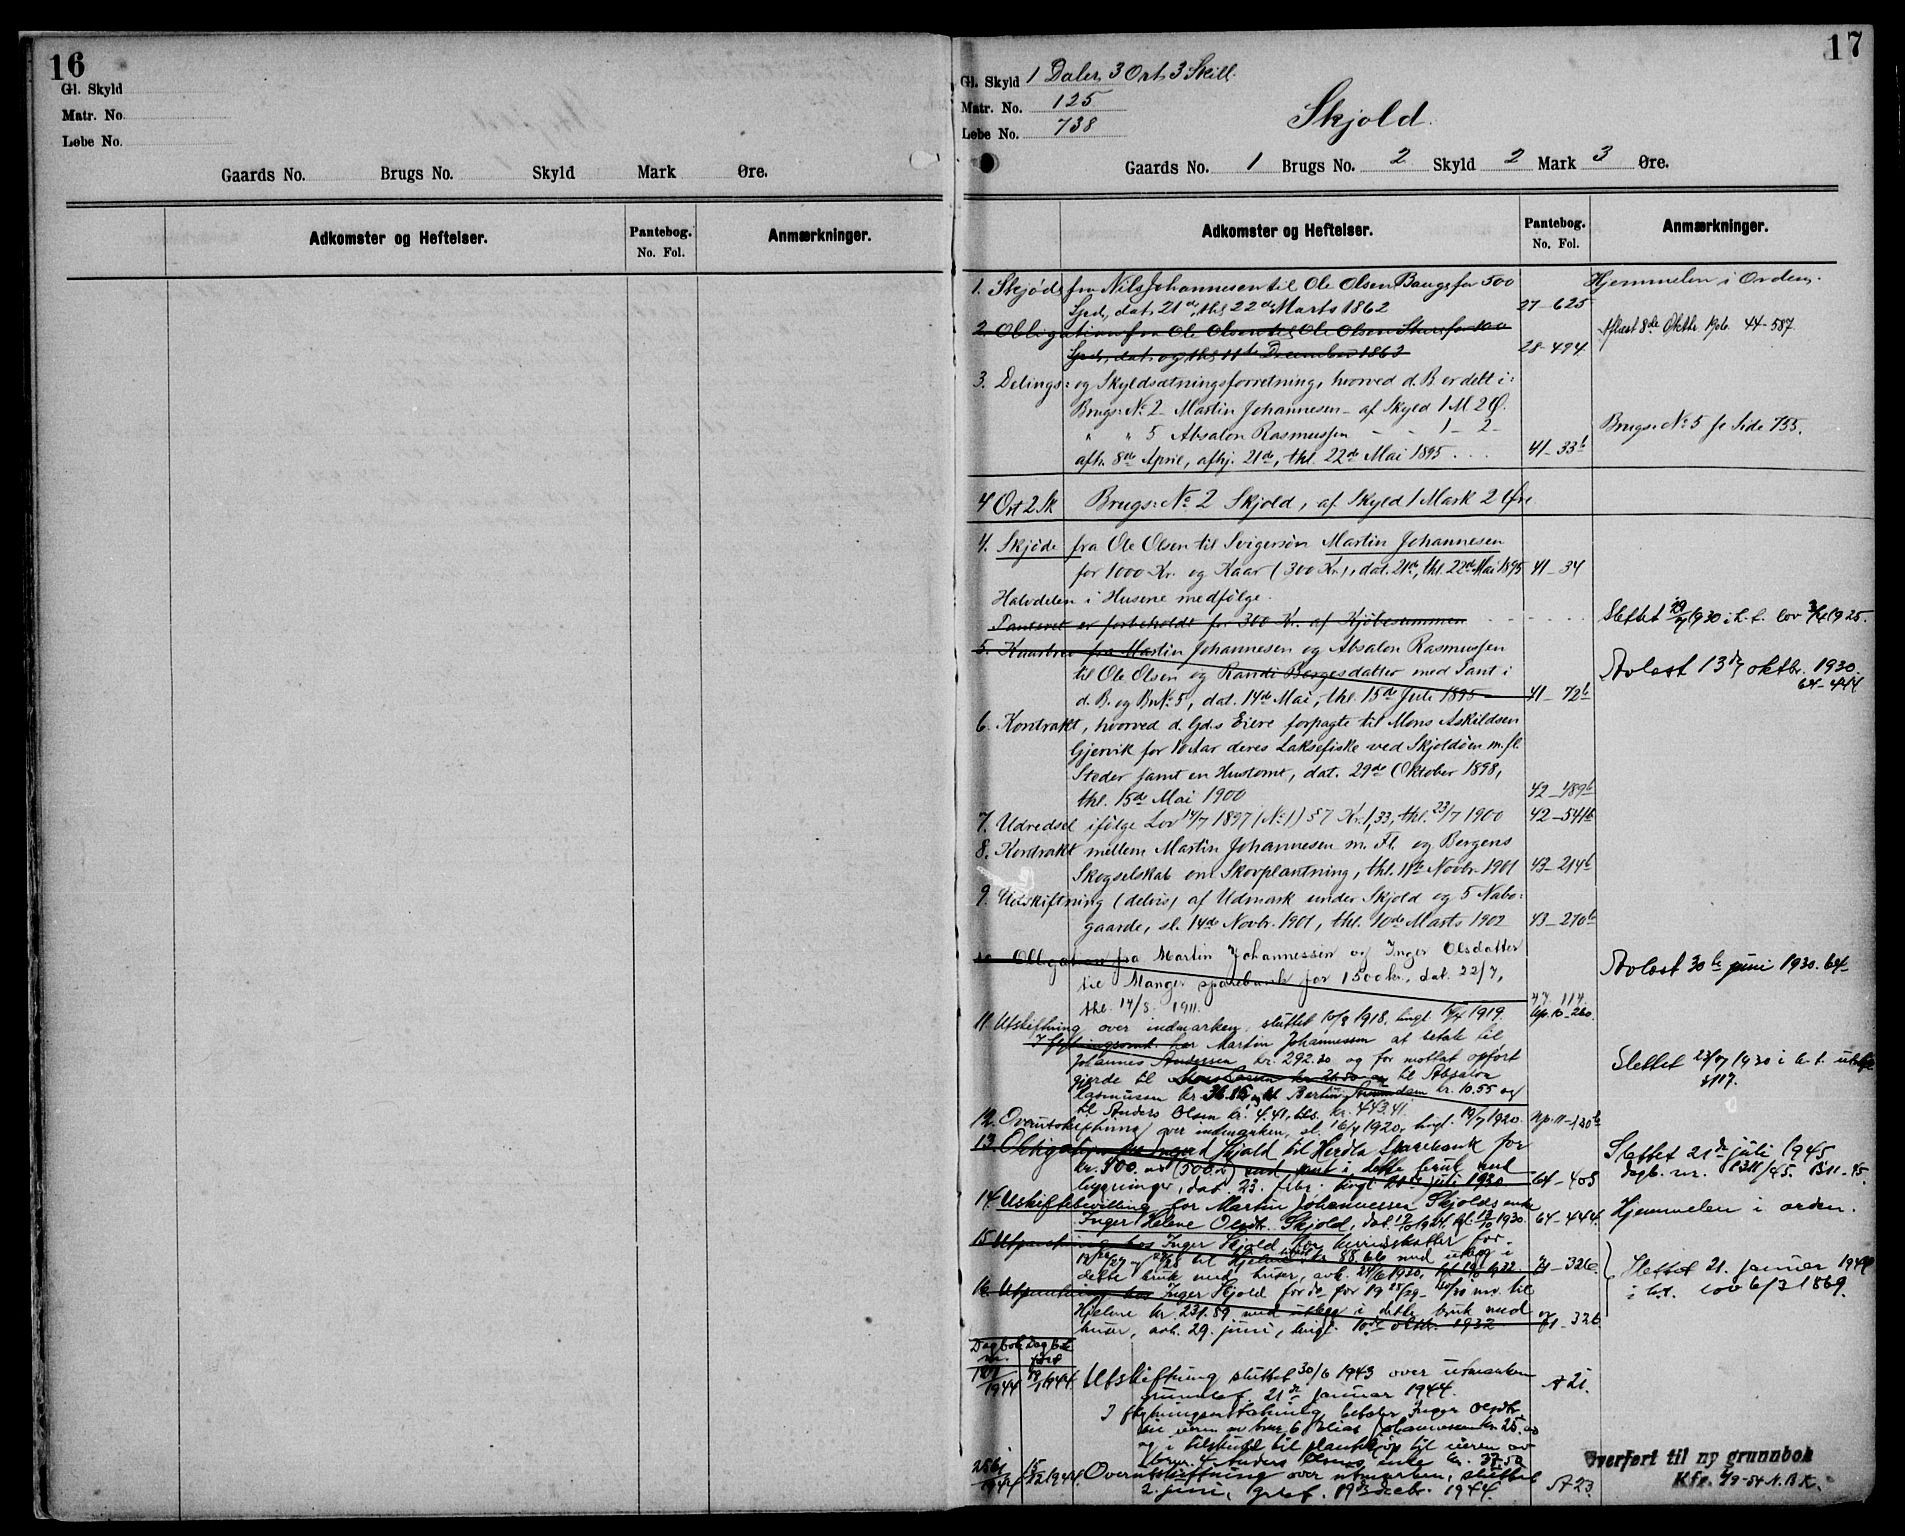 16
Gl. Skyld
Matr. No.
Løbe No.
Gaards No. Brugs No. Skyld Mark Øre.
Adkomster og Heftelser. Pantebog. No. Fol. Anmærkninger.
17
Gl. Skyld 1 Daler 3 Ort 3 Skill.
Matr. No. 125
Løbe No. 738
Skjold.
Gaards No. 1 Brugs No. 2 Skyld 2 Mark 3 Øre.
Adkomster og Heftelser. Pantebog. No. Fol. Anmærkninger.
1. Skjøde fra Nils Johannesen til Ole Olsen Bauge for 500 Hjemmelen i Orden.
Spd, dat. 21de, thl 22de Marts 1862 27-625
2. Obligation fra Ole Olsen til Ole Olsen Sture for 100 Aflæst 8de Oktbr. 1906. 44-587
Spd, dat. og thl 11te December 1863 28-494
3. Delings- og Skyldsætningsforretning, hvorved d. B er delt i:
Brugs: No 2 Martin Johannesen - af Skyld 1 M 2 Ø.
" " 5 Absalon Rasmussen - - 1 - 2 - Brugs: No 5 se Side 755.
afh. 8de April, afhj. 21de, thl. 22de Mai 1895 41-33b
4 Ort 2 Sk Brugs: No 2 Skjold, af Skyld 1 Mark 2 Øre
4. Skjøde fra Ole Olsen til Svigersøn Martin Johannesen
for 1000 Kr. og Kaar (300 Kr.), dat. 21de, thl. 22de Mai 1895 41-34
Halvdelen i Husene medfølge.
Panteret er forbeholdt for 300 Kr. af Kjøbesummen Slettet 1930 i h. t. lov 1925.
5. Kaarbrev fra Martin Johannesen og Absalon Rasmussen
til Ole Olsen og Randi Børgesdatter med Pant i Avlæst 13de oktbr. 1930. 64-444
d. B. og BrNo 5, dat. 14de Mai, thl. 15de Juli 1895 41-72b
6. Kontrakt, hvorved d. Gds Eiere forpagte til Mons Askildsen
Gjervik for 10 Aar deres Laksefiske ved Skjoldøen m. fl.
Steder samt en Hustomt, dat. 29de Oktober 1898,
thl. 15de Mai 1900 42-489b
7. Udredsel ifølge Lov 14/7 1897 (No 1) § 7 Kr. 1,33, thl. 23/7 1900 42-541b
8. Kontrakt mellem Martin Johannesen m. Fl. og Bergens
Skogselskab om Skovplantning, thl. 11te Novbr. 1901 43-214b
9. Udskiftning (delvis) af Udmark under Skjold og 5 Nabo-
gaarde, sl. 14de Novbr. 1901, thl. 10de Marts 1902 43-270b
10. Obligation fra Martin Johannessen og Inger Olsdatter Avlæst 30te juni 1930. 64-
til Manger sparebank for 1500 kr., dat. 22/7,
thl. 14/8 1911. 47 114.
11. Utskiftning over indmarken, sluttet 10/8 1918, tingl. 1919. Up. 10-260.
I flytningsomk. har Martin Johannessen at betale til
Johannes Andersen kr. 292.30 og for mottat opført Slettet 23/7 1930 i h. t. utskl. § 117.
gjerde til kr. 21.50 og til Absalon
Rasmussen kr. og til Bertin kr. 10.55 og
til Anders Olsen kr. 4.41, tils. kr. 443.41.
12. Overutskiftning over indmarken, sl. 16/4 1920, tingl. 19/7 1920. Up. 11-130b
13. Obligation fra Inger Skjold til Herdla Sparebank for Slettet 21de juli 1945
kr. 500 med pant i dette bruk med dagb. nr. 1311/45. B 11-95.
bygninger, dat. 23. febr. tingl. 21de juli 1930 64-405
14. Uskiftebevilling for Martin Johannessen Skjolds enke
Inger Helene Olsdtr. Skjold, dat. tl. 1930. 64-444. Hjemmelen i orden.
15. Utpantning hos Inger Skjold for herredskatter for
til Hjelme kr. 88.60 med utlegg i Slettet 21. januar 1944
dette bruk med huser, avh. 1930, 71-326. i h.t. lov 6/3 1869.
16. Utpantning hos Inger Skjold for do for 19 28/29 - 29/30 mv. til
Hjelme kr. 231.89 med utlegg i dette bruk med
huser, avh. 29. juni, tingl. 10de oktbr. 1932 71-326
Dagbok nr. Dagbok ført
1944 1944 Utskiftning sluttet 30/6 1943 over utmarken A 21.
grunnbf. 21de januar 1944.
I flytningserstatning betaler Inger Olsdtr.
til eieren av bnr. 6 Elias Johannessen kr. 25.00
og i tilskudd til plantehjelp til eieren av
bnr. 4 Anders Olsens enke kr. 37.50
2561/1944 15/12 1944. Overutskiftning over utmarken, sluttet
2. juni, grbf. 19de decbr. 1944. A 23.
Overført til ny grunnbok
Kfr. 6/9-54 N.B.K.